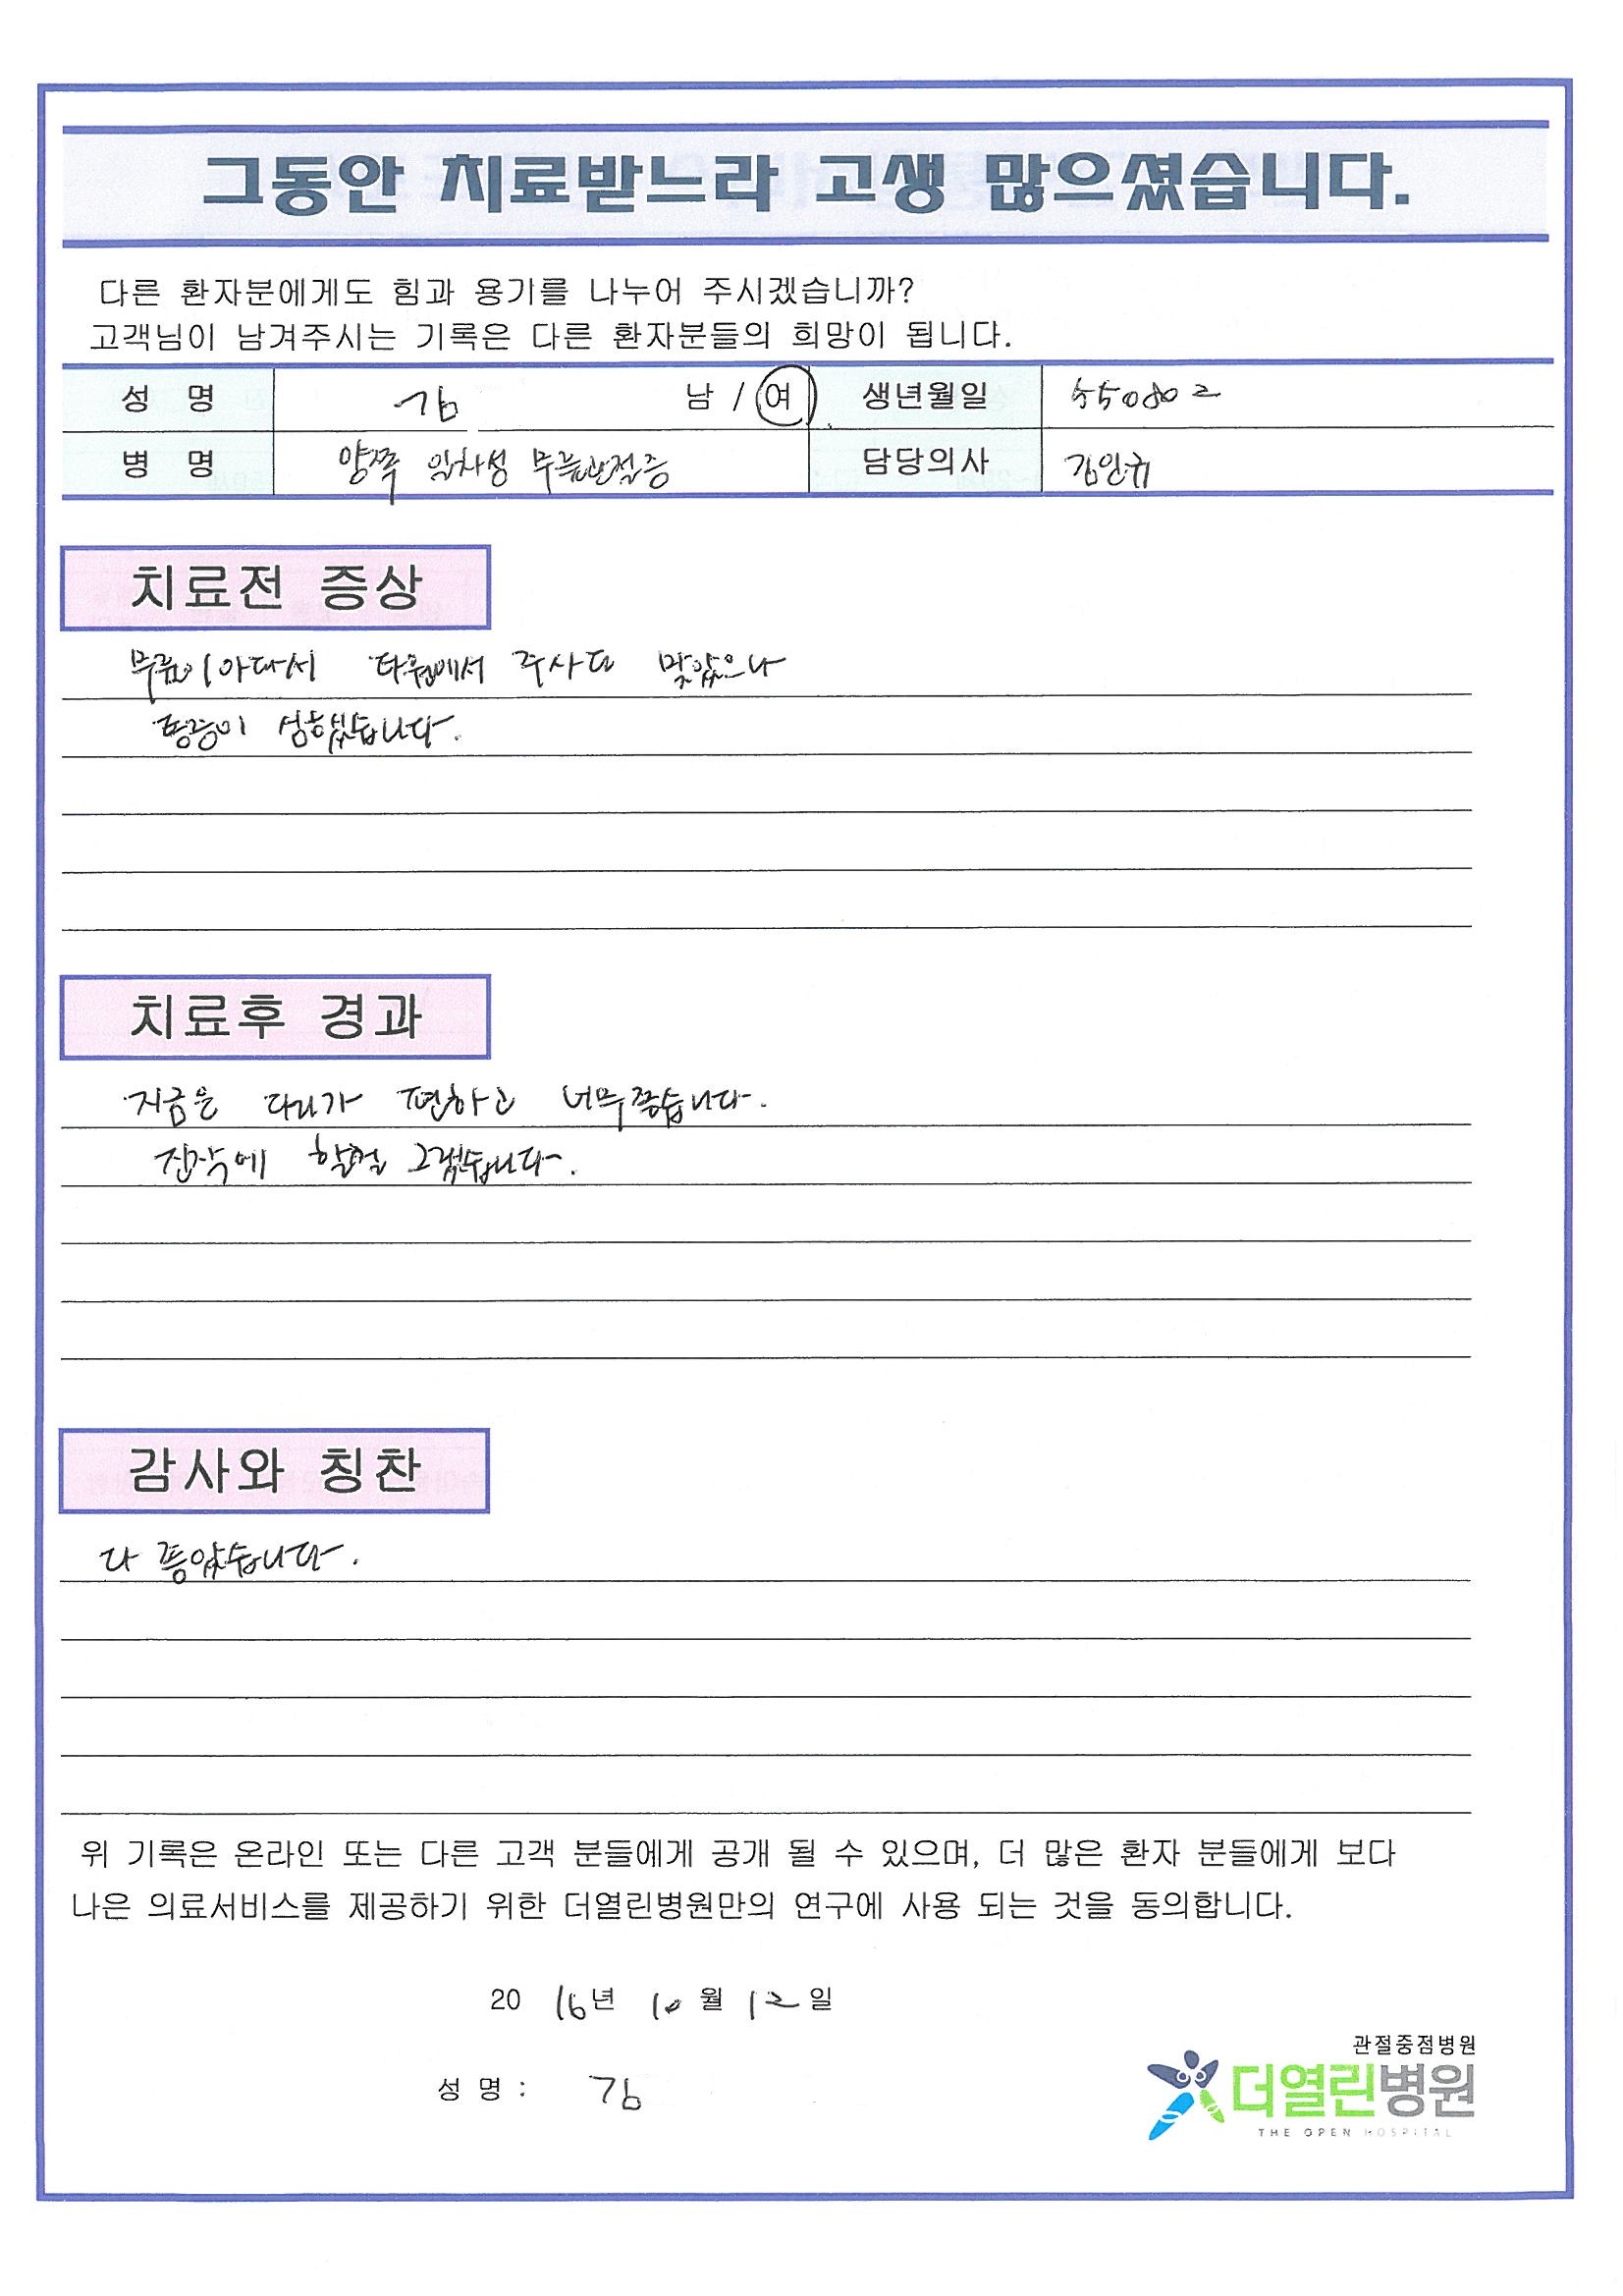 그동안 치료받느라 고생 많으셨습니다.
다른 환자분에게도 힘과 용기를 나누어 주시겠습니까?
고객님이 남겨주시는 기록은 다른 환자분들의 희망이 됩니다.
성 명 김 남 / 여 생년월일 550802
병 명 양쪽 일차성 무릎관절증 담당의사 김인규
치료전 증상
무릎이 아파서 타원에서 주사도 맞았으나
통증이 심했습니다.
치료후 경과
지금은 다리가 편하고 너무좋습니다.
진작에 할걸 그랬습니다.
감사와 칭찬
다 좋았습니다.
위 기록은 온라인 또는 다른 고객 분들에게 공개 될 수 있으며, 더 많은 환자 분들에게 보다
나은 의료서비스를 제공하기 위한 더열린병원만의 연구에 사용 되는 것을 동의합니다.
20 16년 10월 12일
성 명 : 김
관절중점병원
더열린병원
THE OPEN HOSPITAL